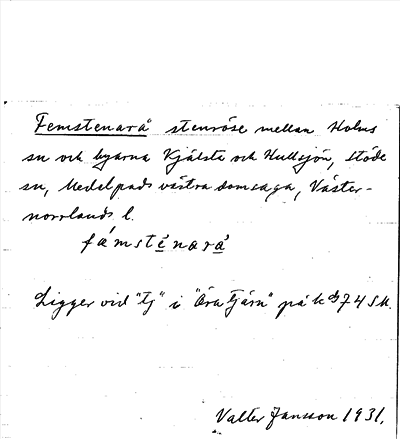 Femstenarå stenröse mellan Holms
sn och byarna Kjälsta och Hullsjön, Stöde
sn, Medelpads västra domsaga, Väster-
norrlands l.
fámstènarà
Ligger vid "tj" i "Öratjärn" på kbl 74 SV.
Valter Jansson 1931.